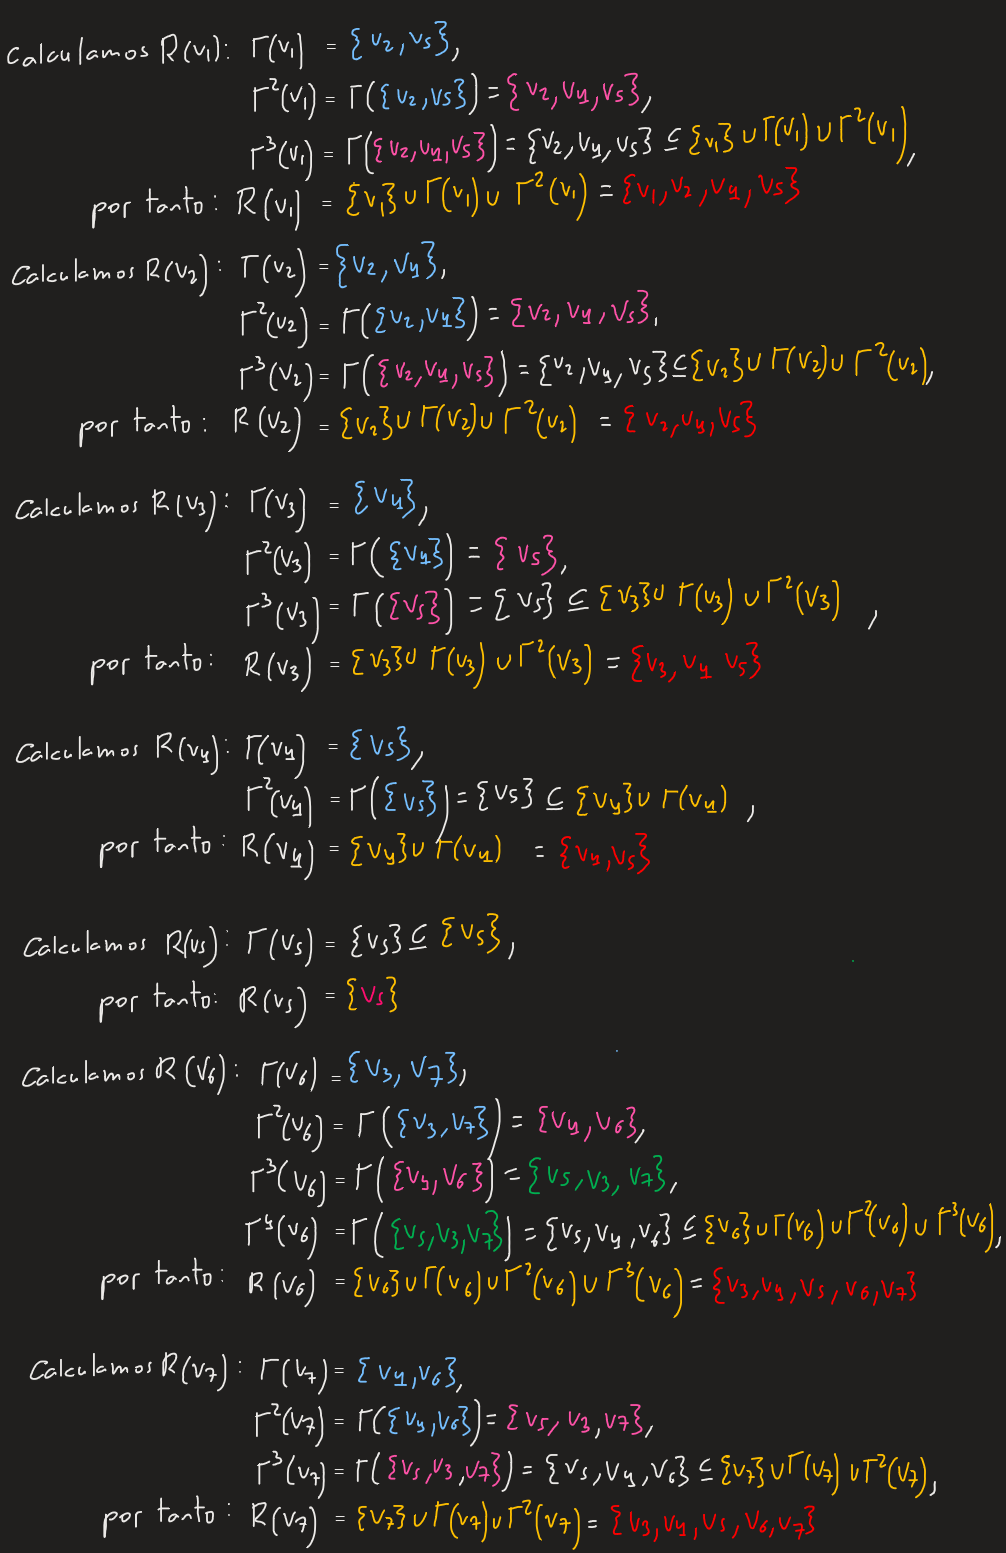 Calculamos R(v₁): Γ(v₁) = {v₂, v₅},
Γ²(v₁) = Γ({v₂, v₅}) = {v₂, v₄, v₅},
Γ³(v₁) = Γ({v₂, v₄, v₅}) = {v₂, v₄, v₅} ⊆ {v₁} ∪ Γ(v₁) ∪ Γ²(v₁),
por tanto: R(v₁) = {v₁} ∪ Γ(v₁) ∪ Γ²(v₁) = {v₁, v₂, v₄, v₅}
Calculamos R(v₂): Γ(v₂) = {v₂, v₄},
Γ²(v₂) = Γ({v₂, v₄}) = {v₂, v₄, v₅},
Γ³(v₂) = Γ({v₂, v₄, v₅}) = {v₂, v₄, v₅} ⊆ {v₂} ∪ Γ(v₂) ∪ Γ²(v₂),
por tanto: R(v₂) = {v₂} ∪ Γ(v₂) ∪ Γ²(v₂) = {v₂, v₄, v₅}
Calculamos R(v₃): Γ(v₃) = {v₄},
Γ²(v₃) = Γ({v₄}) = {v₅},
Γ³(v₃) = Γ({v₅}) = {v₅} ⊆ {v₃} ∪ Γ(v₃) ∪ Γ²(v₃),
por tanto: R(v₃) = {v₃} ∪ Γ(v₃) ∪ Γ²(v₃) = {v₃, v₄ v₅}
Calculamos R(v₄): Γ(v₄) = {v₅},
Γ²(v₄) = Γ({v₅}) = {v₅} ⊆ {v₄} ∪ Γ(v₄),
por tanto: R(v₄) = {v₄} ∪ Γ(v₄) = {v₄, v₅}
Calculamos R(v₅): Γ(v₅) = {v₅} ⊆ {v₅},
por tanto: R(v₅) = {v₅}
Calculamos R(v₆): Γ(v₆) = {v₃, v₇},
Γ²(v₆) = Γ({v₃, v₇}) = {v₄, v₆},
Γ³(v₆) = Γ({v₄, v₆}) = {v₅, v₃, v₇},
Γ⁴(v₆) = Γ({v₅, v₃, v₇}) = {v₅, v₄, v₆} ⊆ {v₆} ∪ Γ(v₆) ∪ Γ²(v₆) ∪ Γ³(v₆),
por tanto: R(v₆) = {v₆} ∪ Γ(v₆) ∪ Γ²(v₆) ∪ Γ³(v₆) = {v₃, v₄, v₅, v₆, v₇}
Calculamos R(v₇): Γ(v₇) = {v₄, v₆},
Γ²(v₇) = Γ({v₄, v₆}) = {v₅, v₃, v₇},
Γ³(v₇) = Γ({v₅, v₃, v₇}) = {v₅, v₄, v₆} ⊆ {v₇} ∪ Γ(v₇) ∪ Γ²(v₇),
por tanto: R(v₇) = {v₇} ∪ Γ(v₇) ∪ Γ²(v₇) = {v₃, v₄, v₅, v₆, v₇}